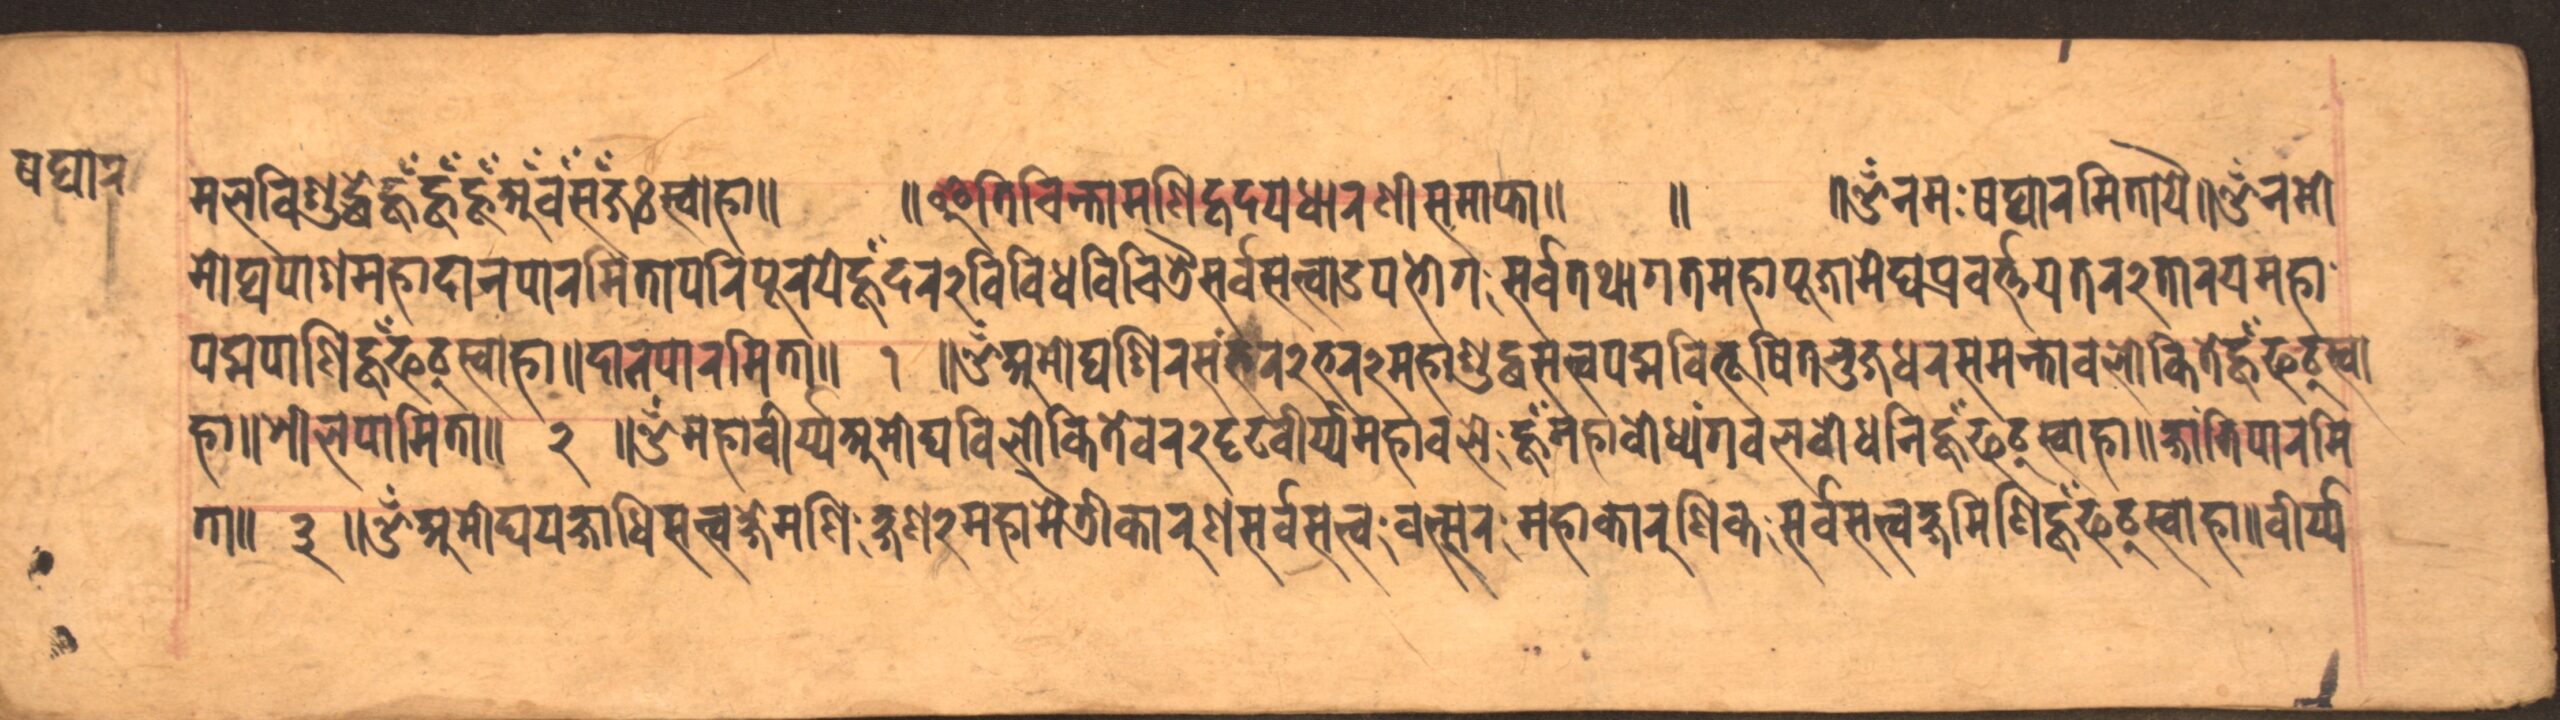 षट्पार
मलविशुद्धे हूँ हूँ हूँ अँ वँ सँ जः स्वाहा॥ ॥इति चिन्तामणिहृदयधारणी समाप्ता॥ ॥ ॥ॐ नमः षट्पारमितायै॥ॐ नमो
मोघपाशमहादानपारमितापरिपूरये हूँ दर२विविधविचित्रै सर्वसत्त्वाउपभोगः सर्वतथागतमहापूजामेघप्रवर्त्तय तर२तारय महा
पद्मपाणि हूँ फट् स्वाहा॥दानपारमिता॥ १ ॥ॐ अमोघशिर संभर२भर२महाशुद्धसत्त्वपद्मविभूषितभुजधर समन्तावलोकिते हूँ फट् स्वा
हा॥शीलपामिता॥ २ ॥ॐ महावीर्य्य अमोघविलोकिते वर२दृढवीर्य्य महावले हूँ महावोध्यंगवलवोधनि हूँ फट् स्वाहा॥क्षांतिपारमि
ता॥ ३ ॥ॐ अमोघयक्षाधिसत्त्वक्षेमणिः क्षण२महामैत्रीकारुण सर्वसत्त्वः वत्सरः महाकारुणिकः सर्वसत्त्वक्षमिणि हूँ फट् स्वाहा॥वीर्य्य